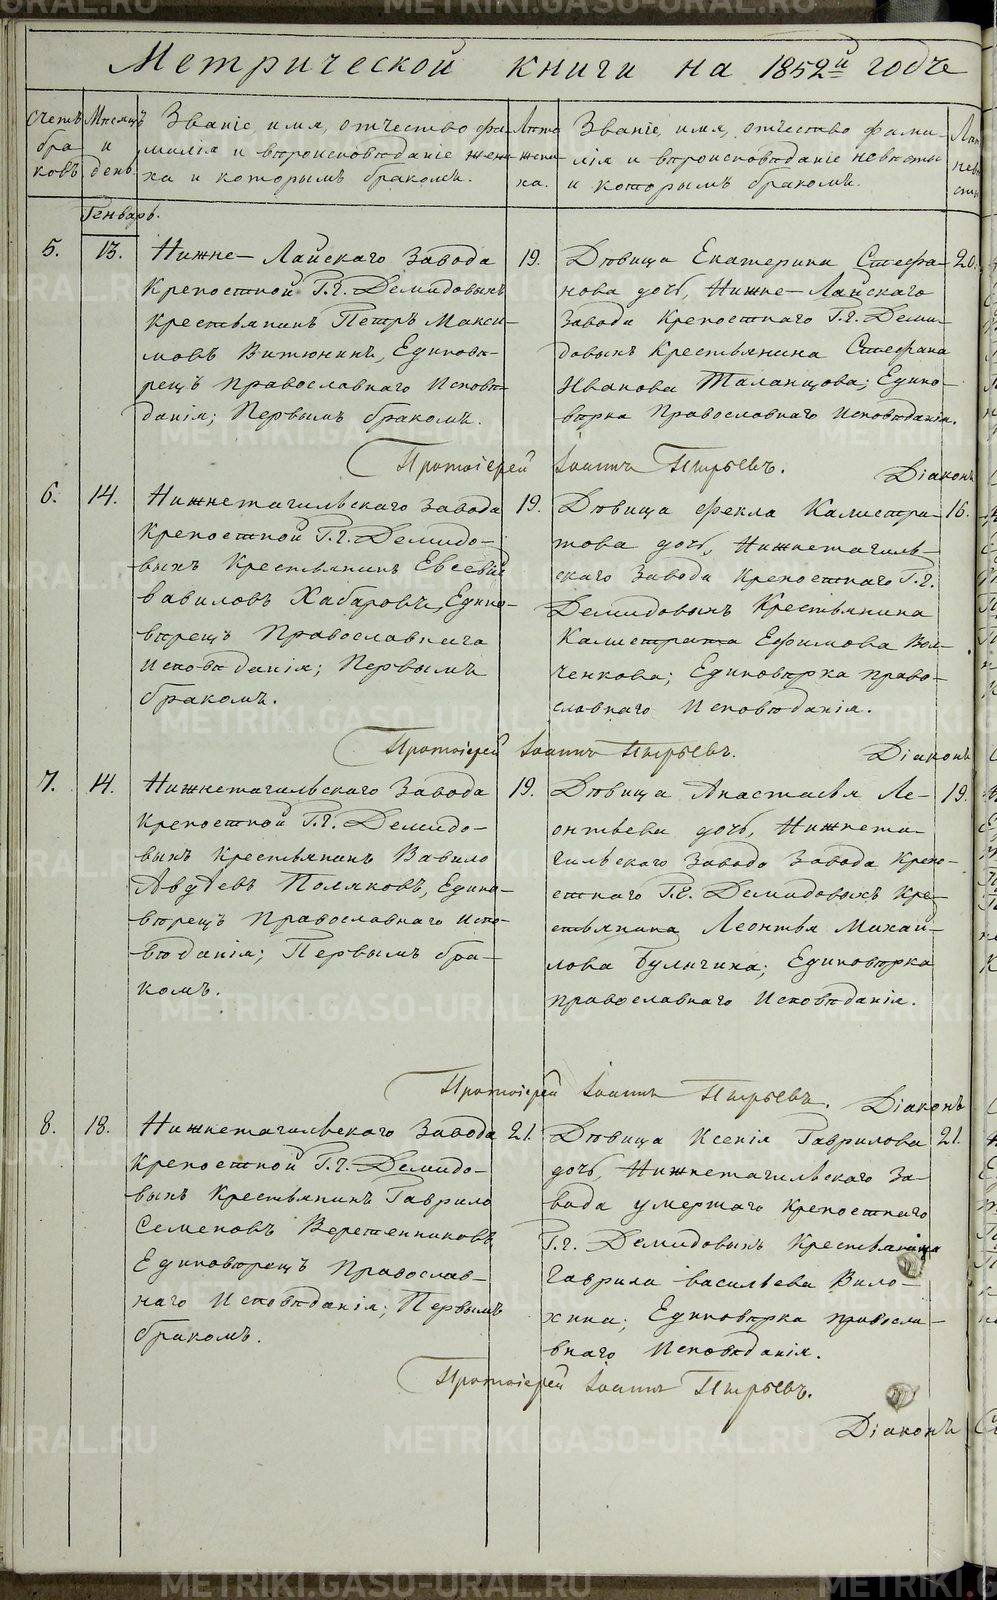 Метрической книги на 1852й годъ
Счетъ бра- ковъ.
Мѣсяцъ и день.
Званіе, имя, отчество фа-
милія и вѣроисповѣданіе жени-
ха и которымъ бракомъ.
Лѣта жени- ха.
Званіе, имя, отчество фами-
лія и вѣроисповѣданіе невѣсты
и которымъ бракомъ.
Генварь.
5. 13.
Нижне-Лайскаго Завода
Крепостной Г.г. Демидовыхъ
Крестьянинъ Петръ Макси-
мовъ Витюнинъ, Единовѣ-
рецъ православнаго Исповѣ-
данія; Первымъ бракомъ.
19.
Дѣвица Екатерина Стефа-
нова дочь, Нижне-Лайскаго
Завода Крепостнаго Г.г. Деми-
довыхъ Крестьянина Стефана
Иванова Таланцова; Едино-
вѣрка Православнаго исповѣданія.
20.
Протоіерей Іоаннъ Пырьевъ.
Діаконъ
6. 14.
Нижнетагильскаго завода
Крепостной Г.г. Демидо-
выхъ Крестьянинъ Евсевій
Вавиловъ Хабаровъ, Едино-
вѣрецъ Православнаго
Исповѣданія; Первымъ
бракомъ.
19.
Дѣвица Фекла Калистра-
това дочь, Нижнетагиль-
скаго Завода Крепостнаго Г.г.
Демидовыхъ Крестьянина
Калистрата Ефимова Вол-
ченкова; Единовѣрка право-
славнаго Исповѣданія.
16.
Протоіерей Іоаннъ Пырьевъ.
Діаконъ
7. 14.
Нижнетагильскаго Завода
Крепостной Г.г. Демидо-
выхъ Крестьянинъ Вавило
Авдѣевъ Поляковъ, Едино-
вѣрецъ Православнаго испо-
вѣданія; Первымъ бра-
комъ.
19.
Дѣвица Анастасья Ле-
онтьева дочь, Нижнета-
гильскаго Завода Завода Крепо-
стнаго Г.г. Демидовыхъ Кре-
стьянина Леонтья Михай-
лова Булычина; Единовѣрка
православнаго Исповѣданія.
19.
Протоіерей Іоаннъ Пырьевъ.
Діаконъ
8. 18.
Нижнетагильскаго Завода
Крепостной Г.г. Демидо-
выхъ Крестьянинъ Гаврило
Семеновъ Веретенниковъ,
Единовѣрецъ Православ-
наго Исповѣданія; Первымъ
бракомъ.
21.
Дѣвица Ксенія Гаврилова
дочь, Нижнетагильскаго За-
вода умершаго Крепостнаго
Г.г. Демидовыхъ Крестьянина
Гаврила Васильева Вило-
хина; Единовѣрка правосла-
внаго Исповѣданія.
21.
Протоіерей Іоаннъ Пырьевъ.
Діаконъ
METRIKI.GASO-URAL.RU